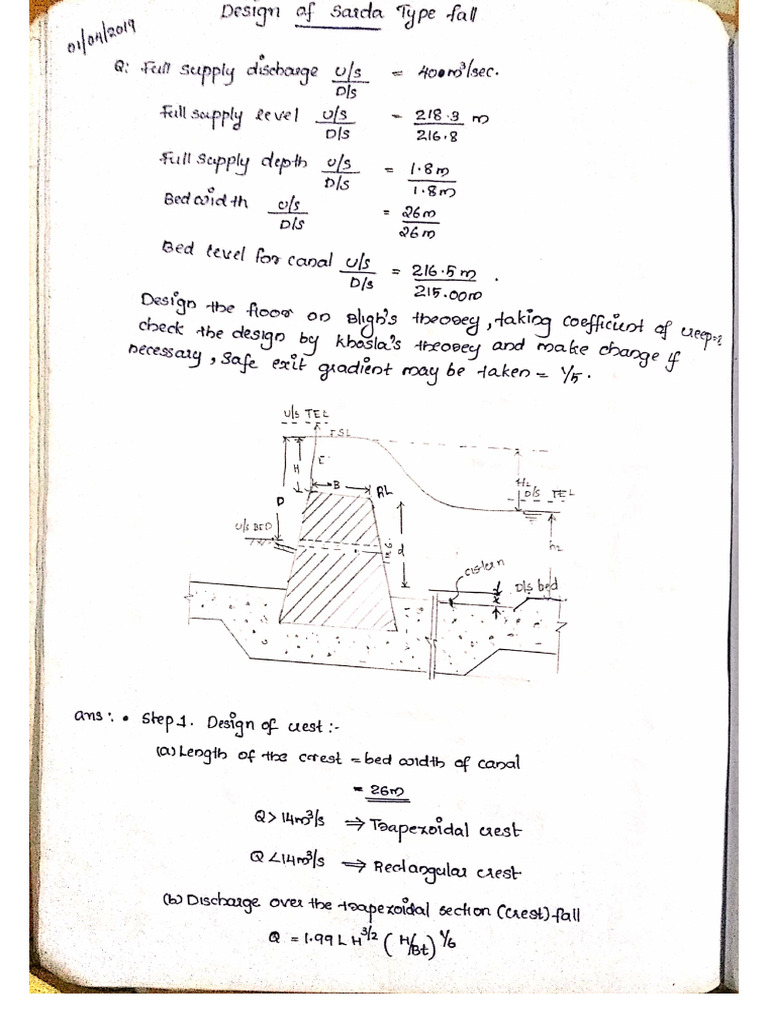 Design of Sarda Type fall
01/04/2019
Q: Full supply discharge U/s / D/s = 400m³/sec.
Full supply level U/s / D/s = 218.3 / 216.8 m
Full supply depth U/s / D/s = 1.8m / 1.8m
Bed width U/s / D/s = 26m / 26m
Bed level for canal U/s / D/s = 216.5m / 215.00m .
Design the floor on Bligh's theorey, taking coefficient of creep
check the design by Khosla's theorey and make change if
necessary, safe exit gradient may be taken = 1/5.
U/s TEL
FSL
H
E
B
RL
H₂
D/s TEL
D
U/s BED
d
h₂
cistern
x
D/s bed
ans: • Step 1. Design of crest :-
(a) Length of the crest = bed width of canal
= 26m
Q > 14m³/s ⇒ Trapezoidal crest
Q < 14m³/s ⇒ Rectangular crest
(b) Discharge over the trapezoidal section (crest) fall
Q = 1.99 L H^3/2 (H/Bt)^1/6